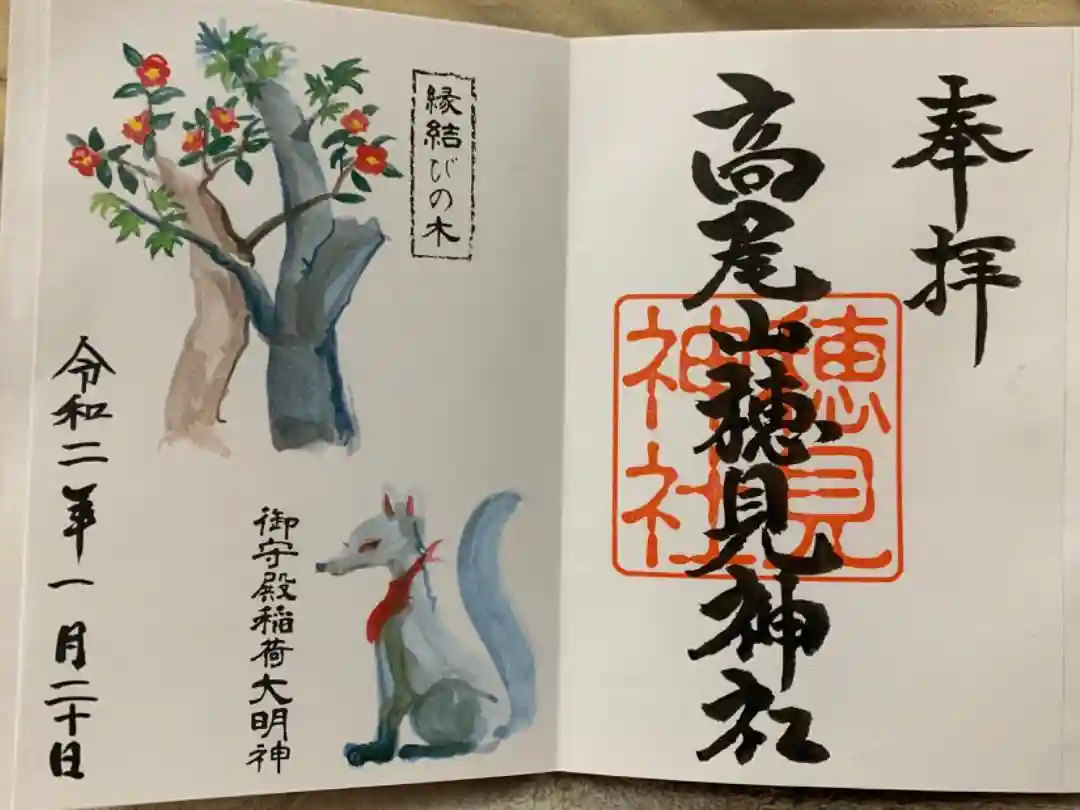 奉拝
高尾山穂見神社
穂見
神社
縁結びの木
御守殿稲荷大明神
令和二年一月二十日